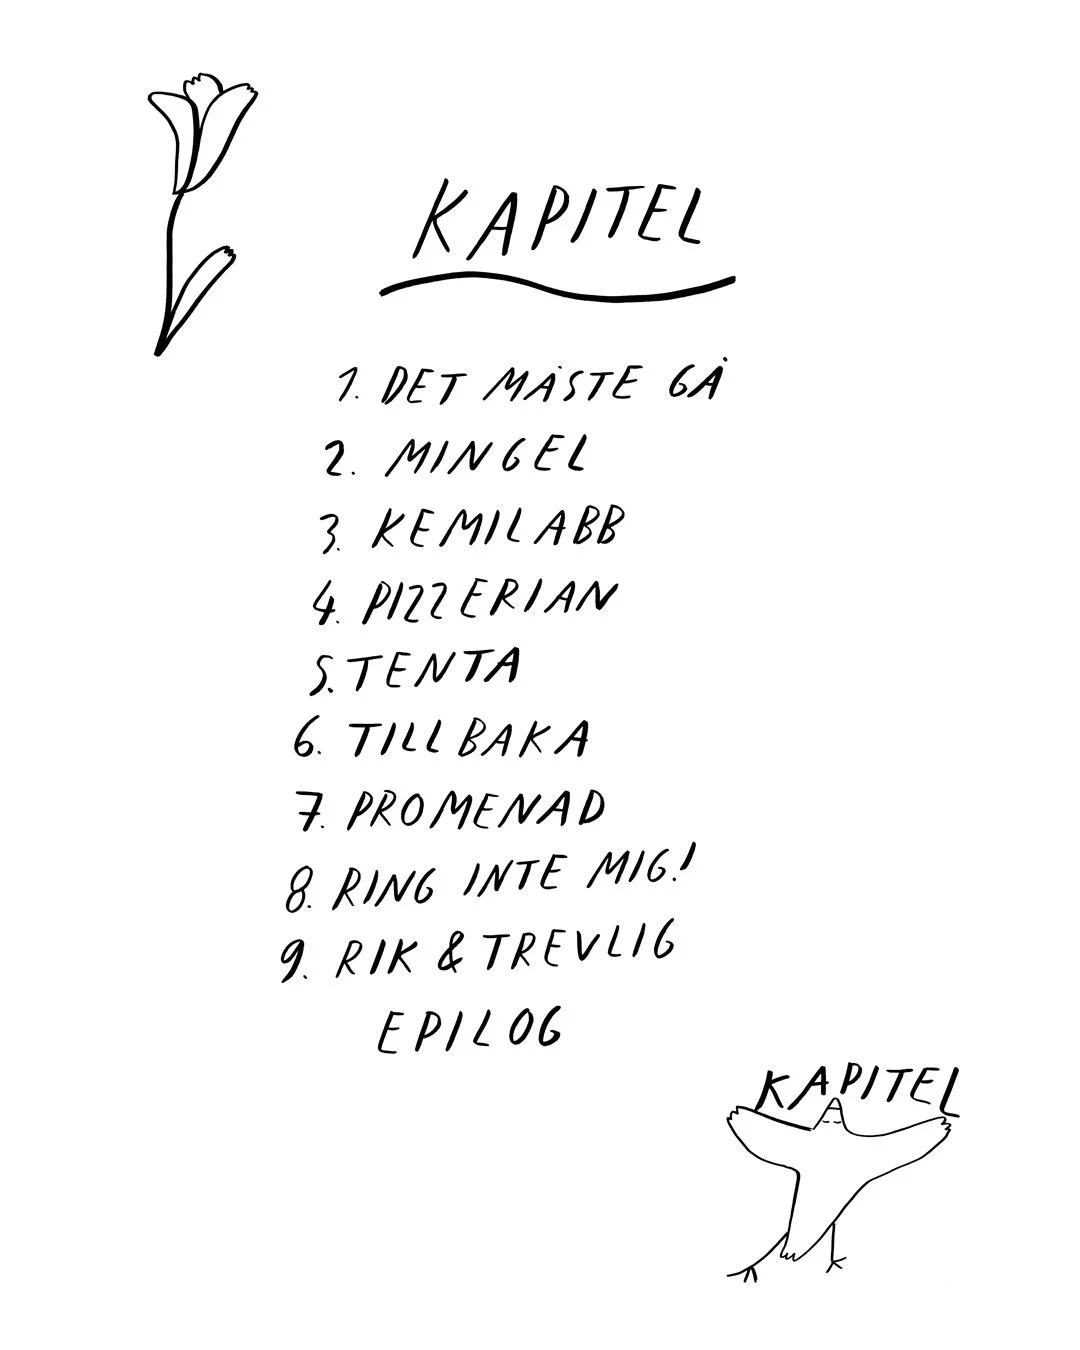 KAPITEL
1. DET MÅSTE GÅ
2. MINGEL
3. KEMILABB
4. PIZZERIAN
5. TENTA
6. TILLBAKA
7. PROMENAD
8. RING INTE MIG!
9. RIK & TREVLIG
EPILOG
KAPITEL